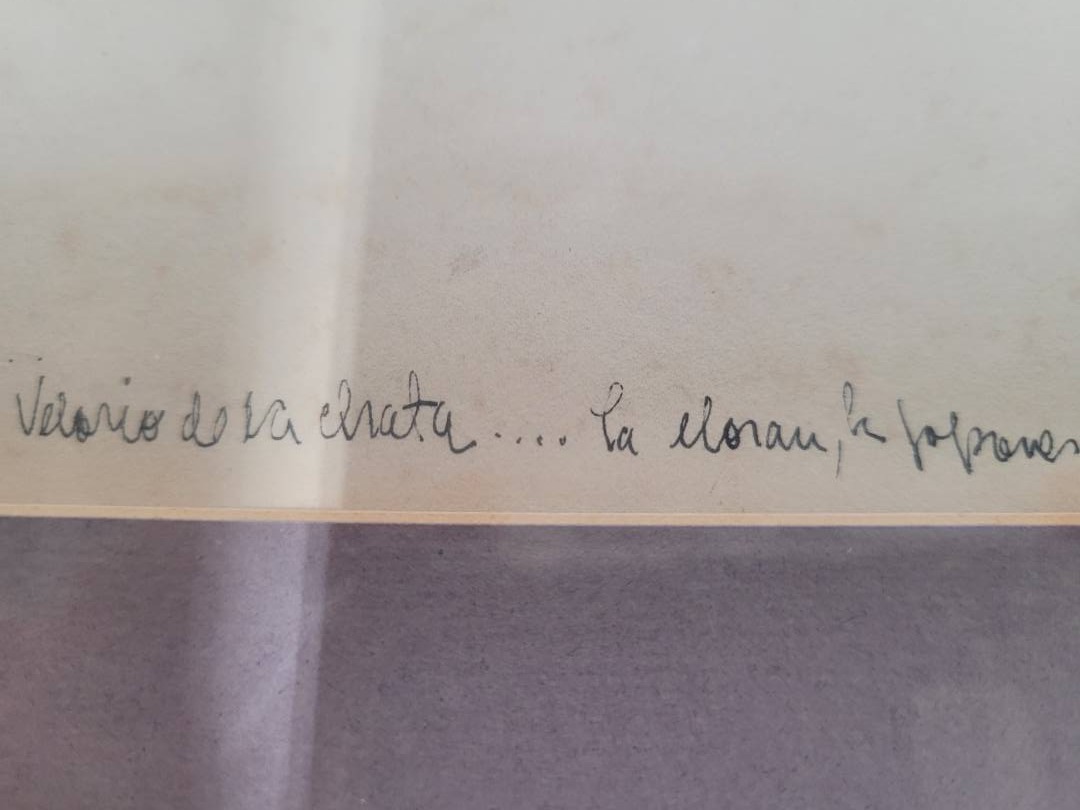 Velorio de la chata .... la lloran, la